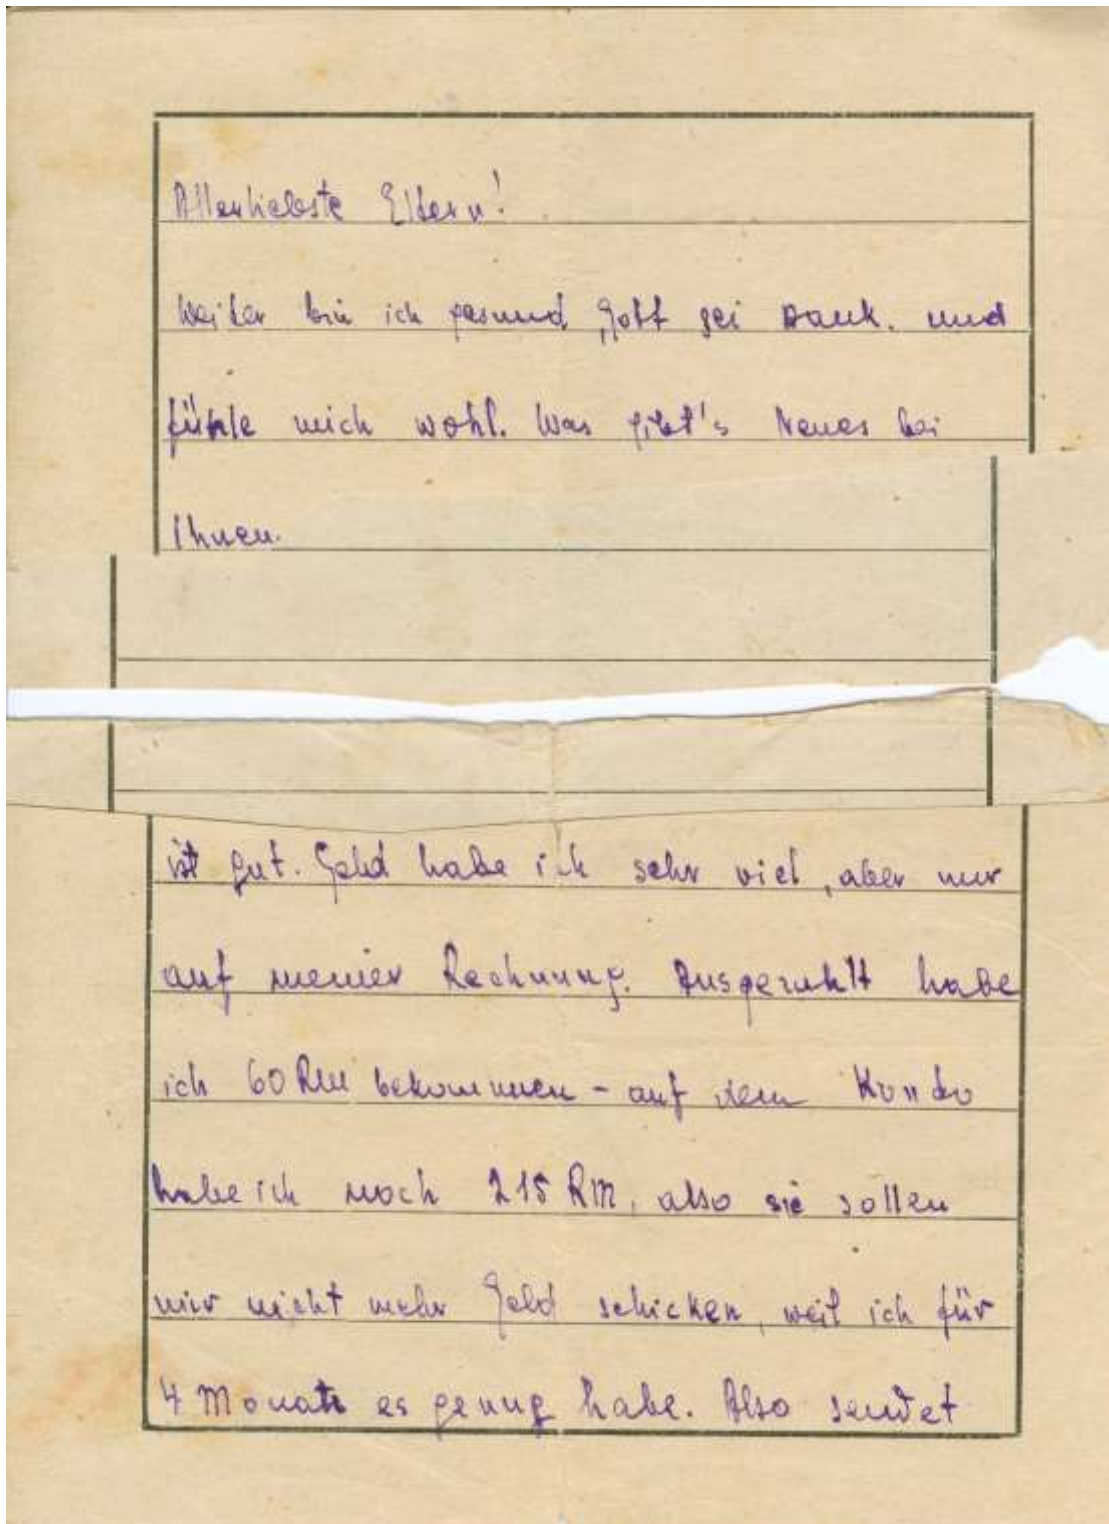 Allerliebste Eltern!
Weiter bin ich gesund, Gott sei Dank. und
fühle mich wohl. Was gibt's Neues bei
Ihnen.
ist gut. Geld habe ich sehr viel, aber nur
auf meiner Rechnung. Ausgezahlt habe
ich 60 RM bekommen - auf dem Konto
habe ich noch 215 RM, also sie sollen
mir nicht mehr Geld schicken, weil ich für
4 Monate es genug habe. Also sendet